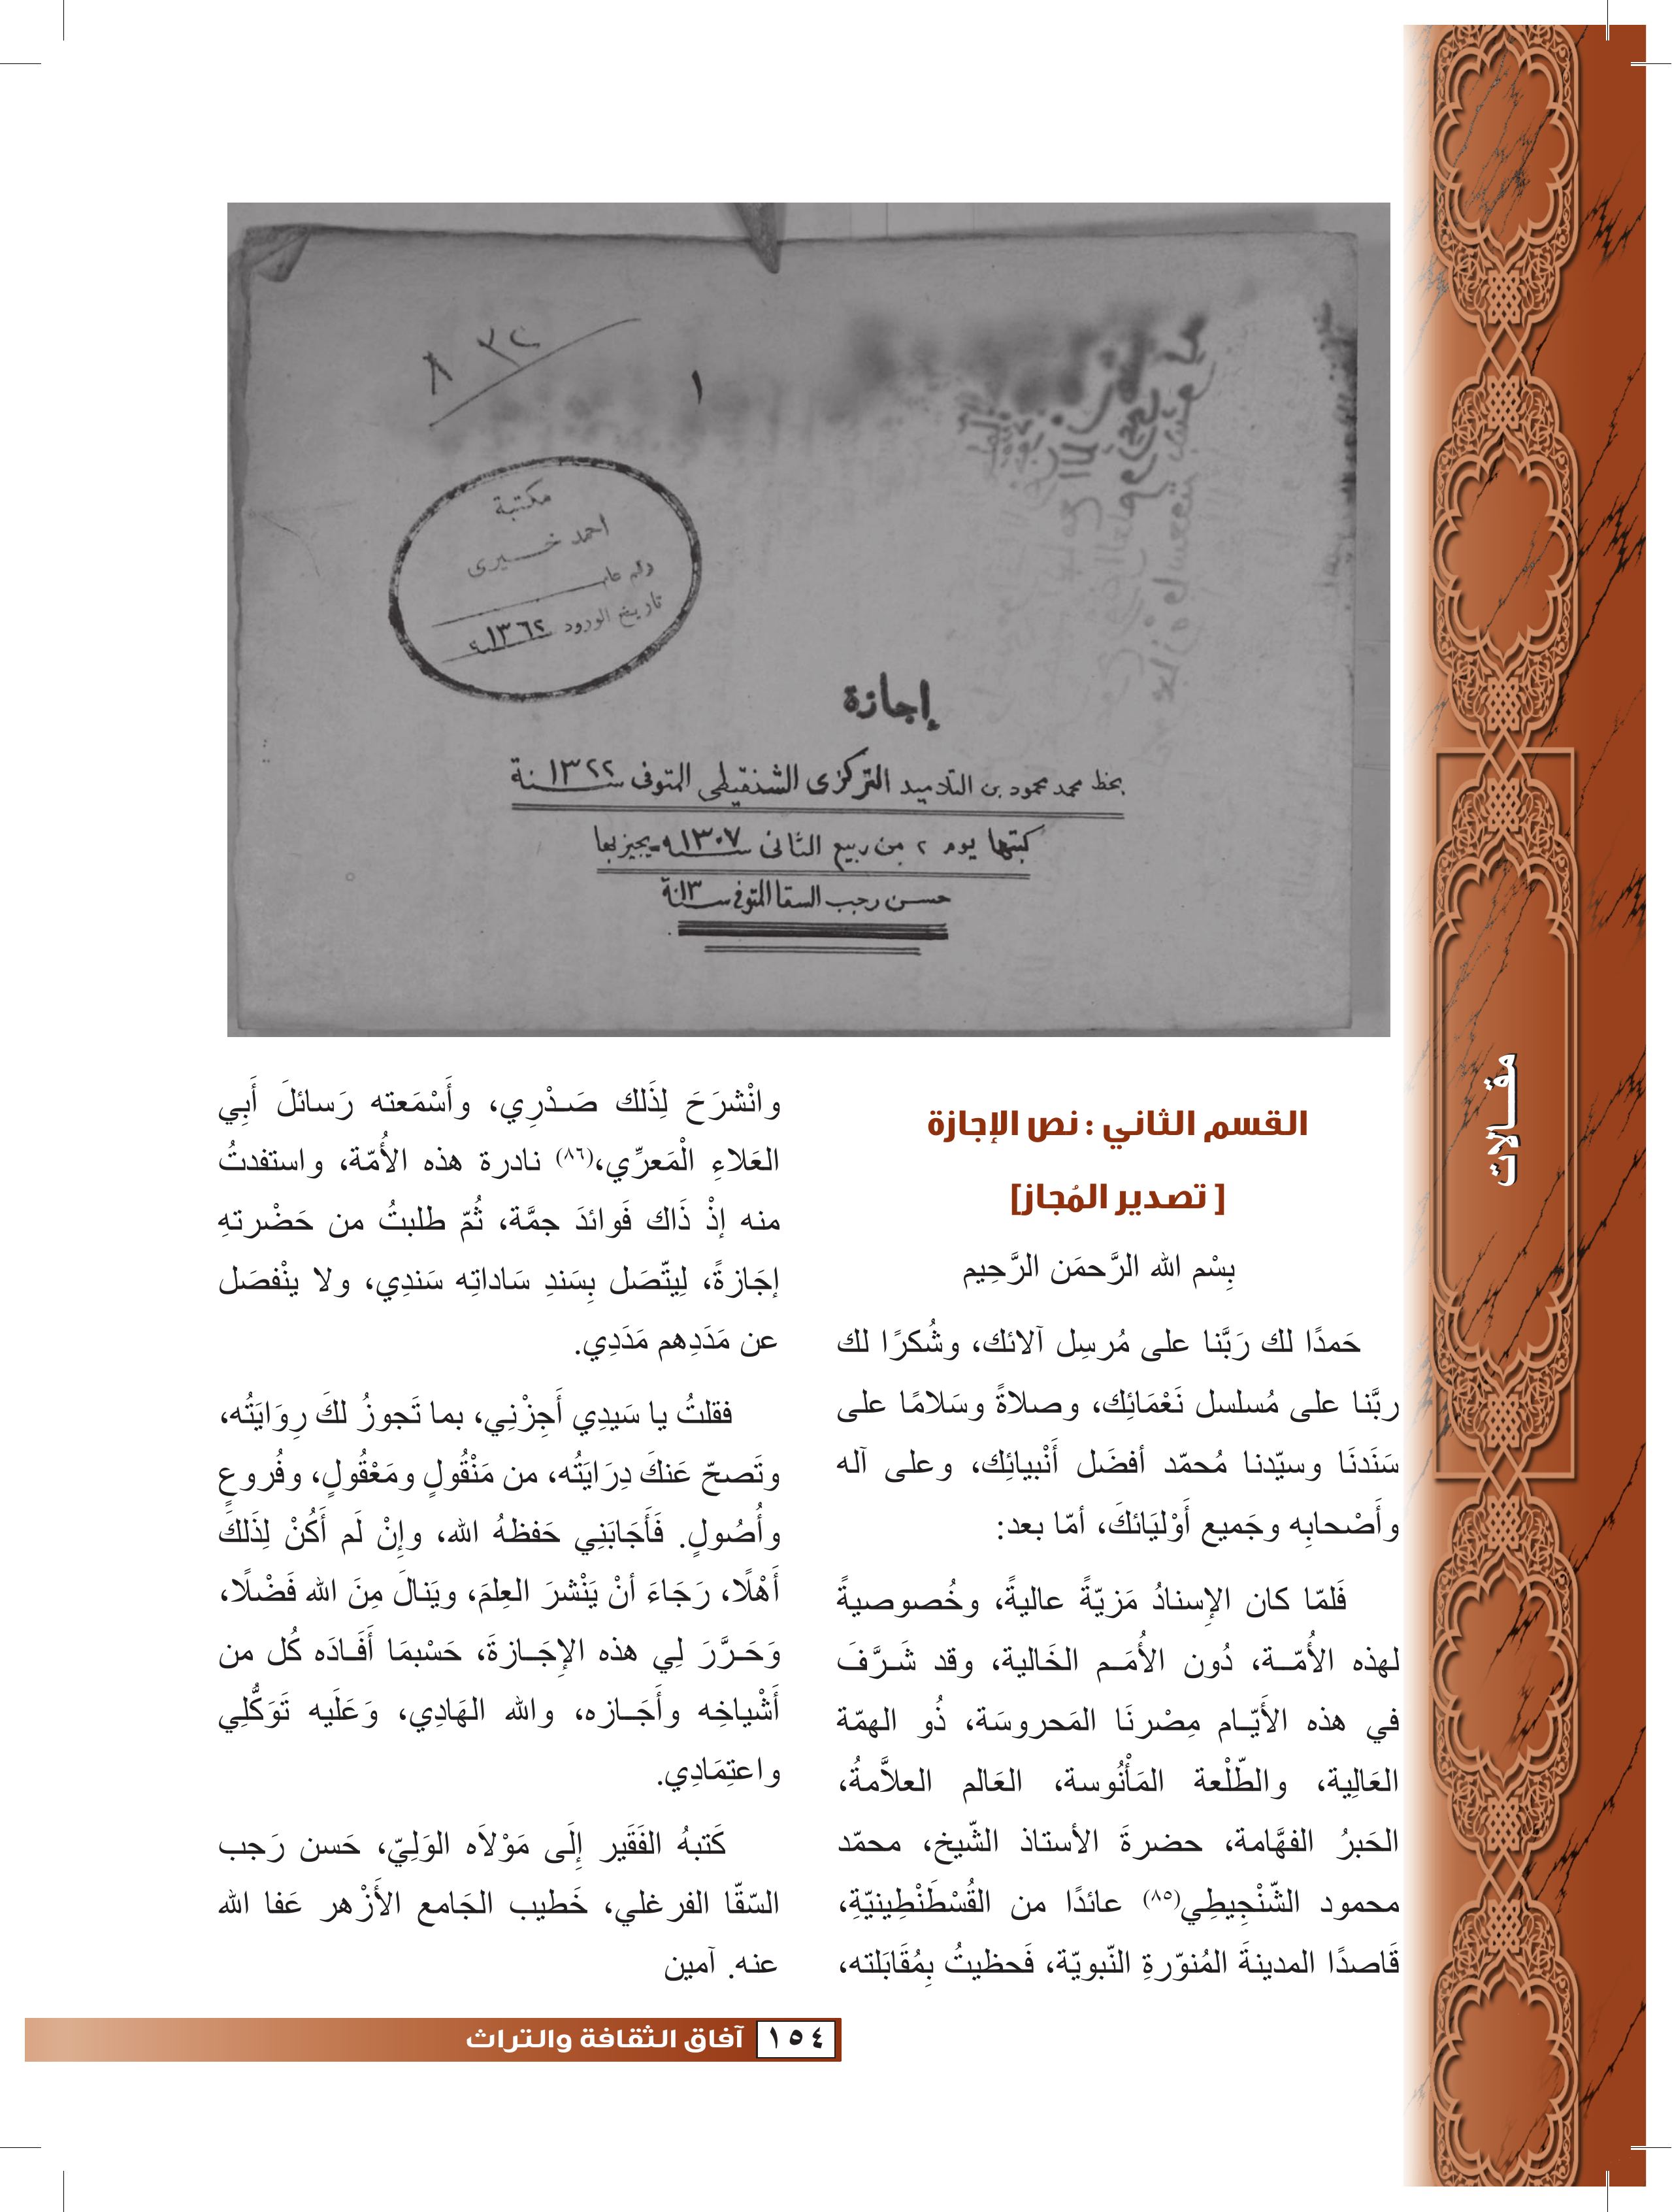 ٨٣٢
١
مكتبة
احمد خيرى
تاريخ الورود ١٣٦٢
إجازة
بخط محمد محمود بن التلاميد التركزى الشنقيطى المتوفى سنة ١٣٢٢
كتبها يوم ٢ من ربيع الثانى سنة ١٣٠٧ يجيز بها
حسن رجب السقا المتوفى سنة ١٣
مقالات
القسم الثاني : نص الإجازة
[ تصدير المُجاز]
بِسْم الله الرَّحمَن الرَّحِيم
حَمدًا لك رَبَّنا على مُرسِل آلائك، وشُكرًا لك
ربَّنا على مُسلسل نَعْمَائِك، وصلاةً وسَلامًا على
سَنَدنَا وسيّدنا مُحمّد أفضَل أَنْبيائِك، وعلى آله
وأَصْحابِه وجَميع أَوْليَائكَ، أمّا بعد:
فَلمّا كان الإسنادُ مَزيّةً عاليةً، وخُصوصيةً
لهذه الأُمّة، دُون الأُمَم الخَالية، وقد شَرَّفَ
في هذه الأَيّام مِصْرنَا المَحروسَة، ذُو الهمّة
العَالِية، والطّلْعة المَأْنُوسة، العَالم العلاَّمةُ،
الحَبرُ الفهَّامة، حضرةَ الأستاذ الشّيخ، محمّد
محمود الشّنْجِيطِي(٨٥) عائدًا من القُسْطَنْطِينيّةِ،
قَاصدًا المدينةَ المُنوّرةِ النّبويّة، فَحظيتُ بِمُقَابَلته،
وانْشرَحَ لِذَلك صَدْرِي، وأَسْمَعته رَسائلَ أَبِي
العَلاءِ الْمَعرِّي،(٨٦) نادرة هذه الأُمّة، واستفدتُ
منه إذْ ذَاك فَوائدَ جمَّة، ثُمّ طلبتُ من حَضْرتهِ
إجَازةً، لِيتّصَل بِسَندِ سَاداتِه سَندِي، ولا ينْفصَل
عن مَدَدِهم مَدَدِي.
فقلتُ يا سَيدِي أَجِزْنِي، بما تَجوزُ لكَ رِوَايَتُه،
وتَصحّ عَنكَ دِرَايَتُه، من مَنْقُولٍ ومَعْقُولٍ، وفُروعٍ
وأُصُولٍ. فَأَجَابَنِي حَفظهُ الله، وإِنْ لَم أَكُنْ لِذَلكَ
أَهْلًا، رَجَاءَ أنْ يَنْشرَ العِلمَ، ويَنالَ مِنَ الله فَضْلًا،
وَحَرَّرَ لِي هذه الإجَازةَ، حَسْبمَا أَفَادَه كُل من
أَشْياخِه وأَجَازه، والله الهَادِي، وَعَلَيه تَوَكُّلِي
واعتِمَادِي.
كَتبهُ الفَقَير إلَى مَوْلاَه الوَلِيّ، حَسن رَجب
السّقّا الفرغلي، خَطيب الجَامع الأَزْهر عَفا الله
عنه. آمين
١٥٤ آفاق الثقافة والتراث